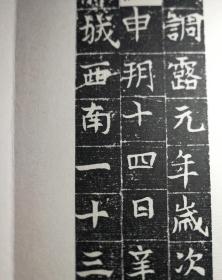 調露元年歲次
申朔十四日
城西南一十三